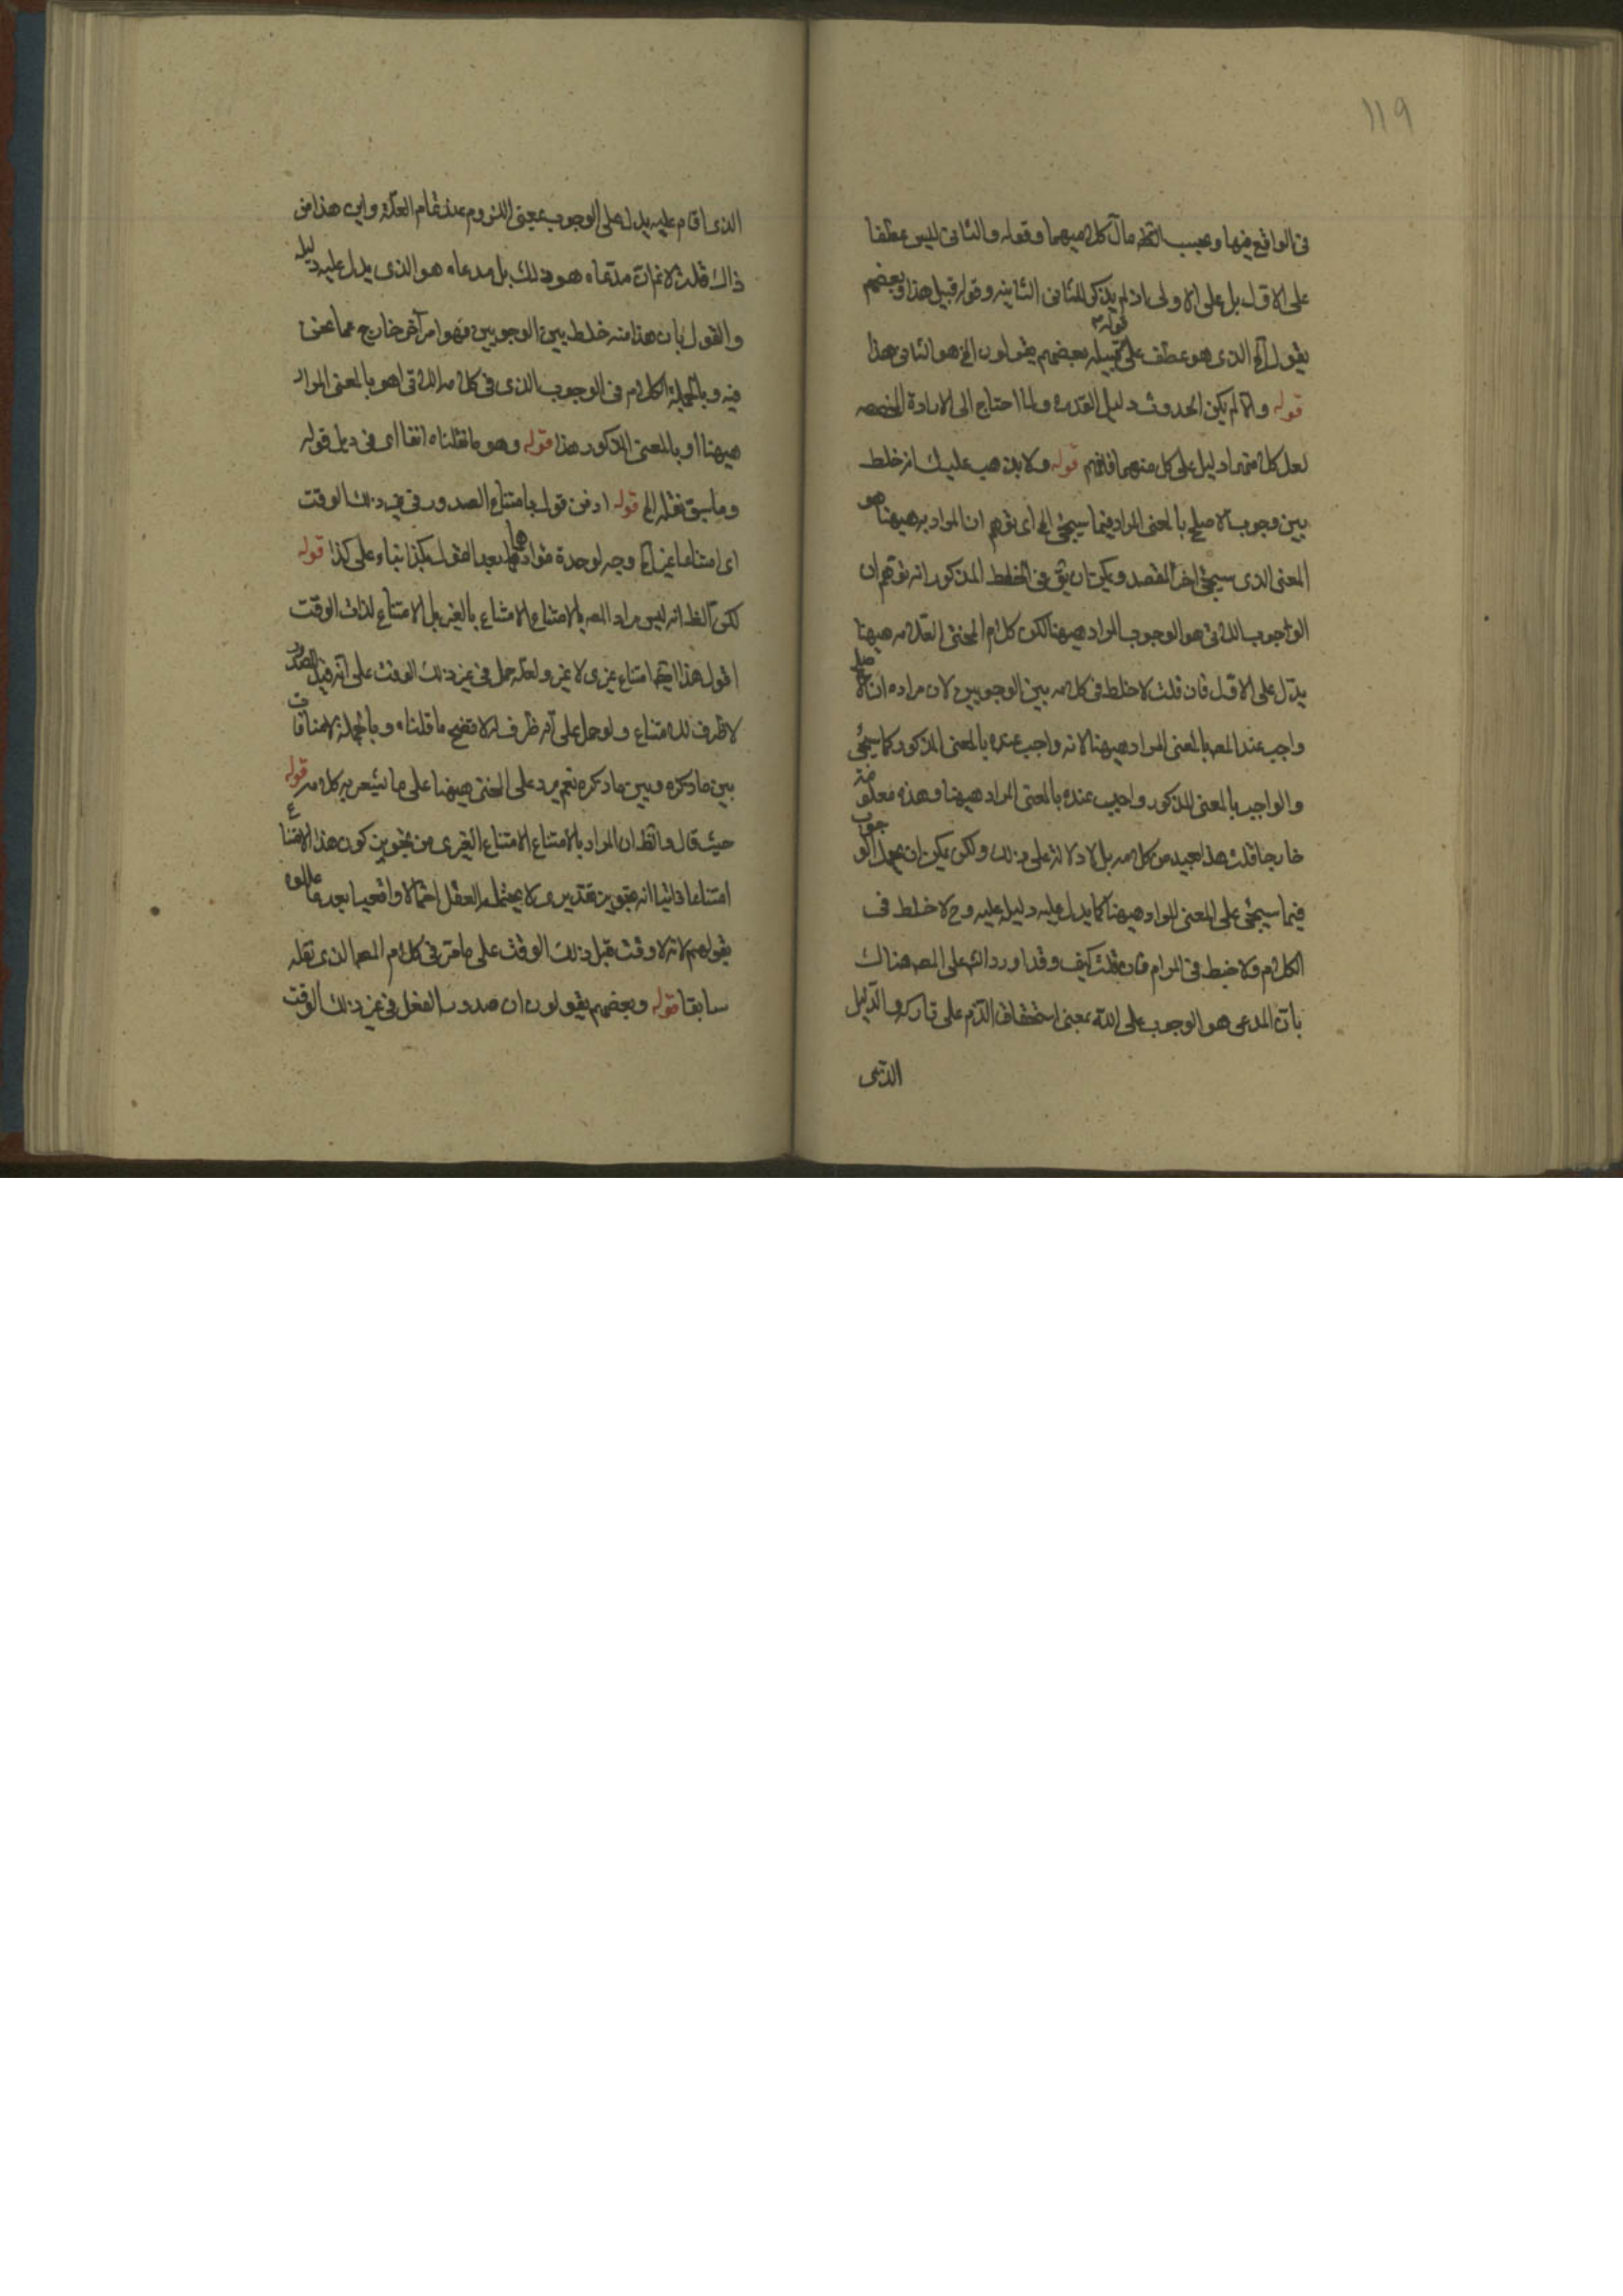 ١١٩
في الواقع فيها وبحسب الظ مآل كلاميهما وقوله والثاني ليس عطفا
على الاول بل على الاولى اذ لم يذكر للثاني الثانية وقوله قبيل هذا وبعضهم
يقول الخ الذي هو عطف على قبيله بعضهم يقولون الخ هو الثاني هذا
قوله
قوله والا لم يكن الحدوث دليل القدرة ولما احتاج الى الارادة المخصصه
لعل كلا منهما دليل على كل منهما فافهم قوله ولا يذهب عليك انه خلط
بين وجوب الاصلح بالمعنى المراد فيما سيجئ الخ اي توهم ان المراد به هيهنا هو
المعنى الذي سيجئ اخر المقصد ويمكن ان يق في الخلط المذكور انه توهم ان
الوجوب الذي هو الوجوب المراد هيهنا لكن كلام المحشى العلامه هيهنا
يدل على الاول فان قلت لا خلط في كلامه بين الوجوبين لان مراده ان الاصلح
واجب عند المص بالمعنى المراد هيهنا لانه واجب عنده بالمعنى المذكور كما سيجئ
والواجب بالمعنى المذكور واجب عنده بالمعنى المراد هيهنا وهذه مقدمة
خارجا قلت هذا بعيد من كلامه بل لا دلالة على ذلك ولكن يمكن ان يحمل الوجوب
فيما سيجئ على المعنى المراد هيهنا كما يدل عليه دليله عليه وح لا خلط في
الكلام ولا خبط في المرام فان قلت كيف وقد اورد الش على المص هناك
بان المدعى هو الوجوب على الله بمعنى استحقاق الذم على تاركه والدليل
الذي
الذي اقام عليه يدل على الوجوب بمعنى اللزوم عند تمام العلة واين هذا من
ذاك قلت لا نم ان مدعاه هو ذلك بل مدعاه هو الذي يدل عليه دليله
والقول بان هذا منه خلط بين الوجوبين فهو امر آخر خارج عما نحن
فيه وبالجملة الكلام في الوجوب الذي في كلامه اهو بالمعنى المراد
هيهنا او بالمعنى المذكور هذا قوله وهو ما نقلناه انفا اي في ذيل قوله
وما سبق نقله الخ قوله اذ من قول بامتناع الصدور في غير ذلك الوقت
اي امتناعا غيريا وجه لوحدة مؤداهما بعد القول بكذا بناء على كذا قوله
لكن الظ انه ليس مراد المص بالامتناع الامتناع بالغير بل الامتناع لذات الوقت
اقول هذا ايضا امتناع غيري لا غير ولعله حمل في غير ذلك الوقت على انه قيد الصدور
لا ظرف للامتناع ولو حمل على انه ظرف له لا تضح ما قلناه وبالجملة لا منافات
بين ما ذكره وبين ما ذكره نعم يرد على المحشى هيهنا على ما يشعر به كلامه قوله
حيث قال والظ ان المراد بالامتناع الامتناع الغيري من تجويز كون هذا الامتناع
امتناعا ذاتيا انه تجويز تقديري لا يحتمله العقل احتمالا واقعيا بعد ما عللوه
بقولهم لانه لا وقت قبل ذلك الوقت على ما مر في كلام المص الذي نقله
سابقا قوله وبعضهم يقولون ان صدور الفعل في غير ذلك الوقت